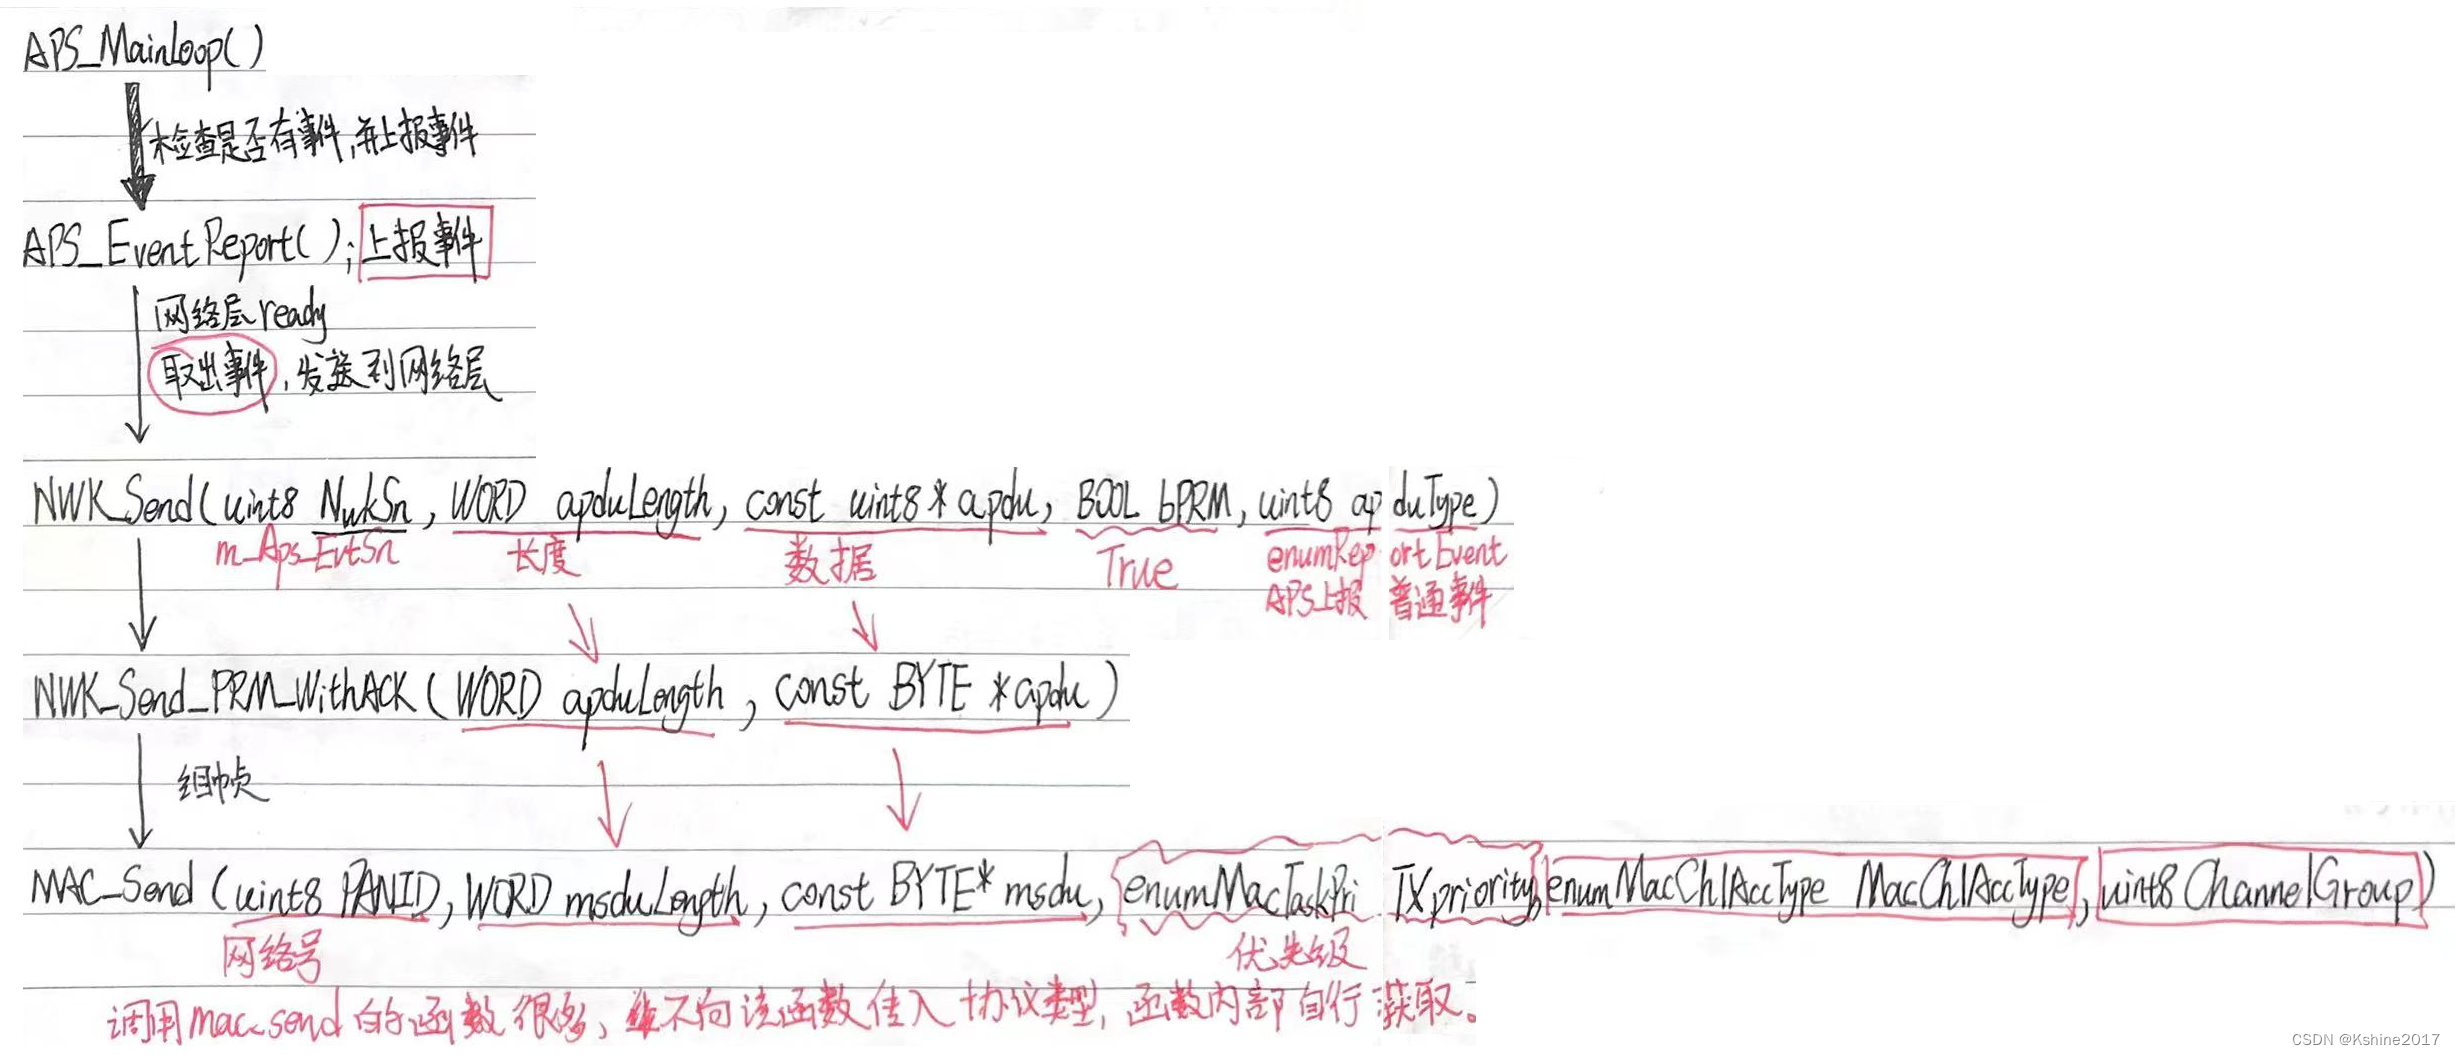 APS_MainLoop()
检查是否有事件,并上报事件
APS_EventReport(); 上报事件
网络层ready
取出事件, 发送到网络层
NWK_Send(uint8 NwkSn, WORD apduLength, const uint8* apdu, BOOL bPRM, uint8 apduType)
m_Aps_EvtSn 长度 数据 True enumReportEvent
APS上报 普通事件
NWK_Send_PRM_WithACK(WORD apduLength, const BYTE *apdu)
组帧
MAC_Send(uint8 PANID, WORD msduLength, const BYTE* msdu, enumMacTaskPri TXpriority, enumMacChlAccType MacChlAccType, uint8 ChannelGroup)
网络号 优先级
调用mac_send的函数很多, 不向该函数传入协议类型, 函数内部自行获取。
CSDN @Kshine2017